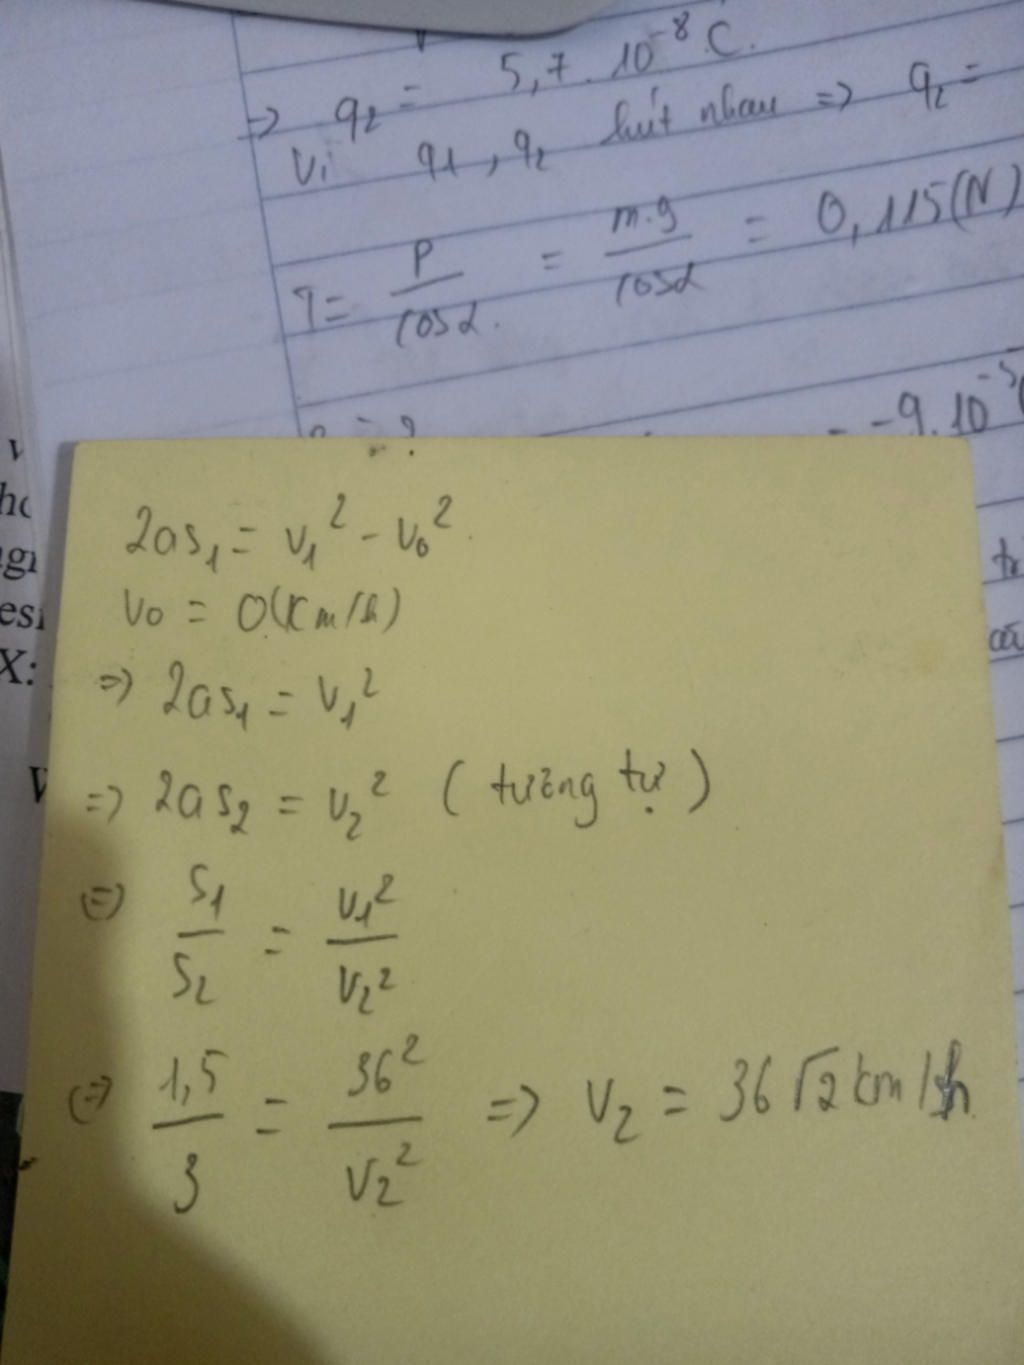 => q₂ = 5,7 . 10⁻⁸ C.
Vì q₁, q₂ hút nhau => q₂ =
T = P/cosα. = m.g/cosα = 0,115(N)
= ?
-9.10⁻⁵
2as₁ = v₁² - v₀².
v₀ = 0(Km/h)
=> 2as₁ = v₁²
=> 2as₂ = v₂² (tương tự)
(=) s₁/s₂ = v₁²/v₂²
(=) 1,5/3 = 36²/v₂² => v₂ = 36√2 km/h
X: